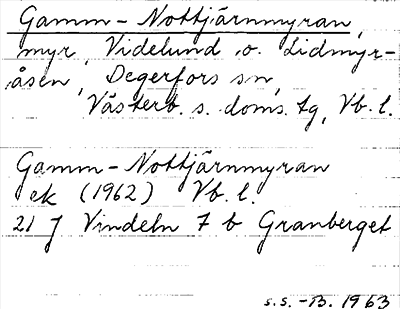 Gamm-Nottjärnmyran,
myr, Videlund o. Lidmyr-
åsen, Degerfors sn,
Västerb. s. doms. tg, Vb. l.
Gamm-Nottjärnmyran
ek (1962) Vb. l.
21 J Vindeln 7 b Granberget
s.s. -B. 1963